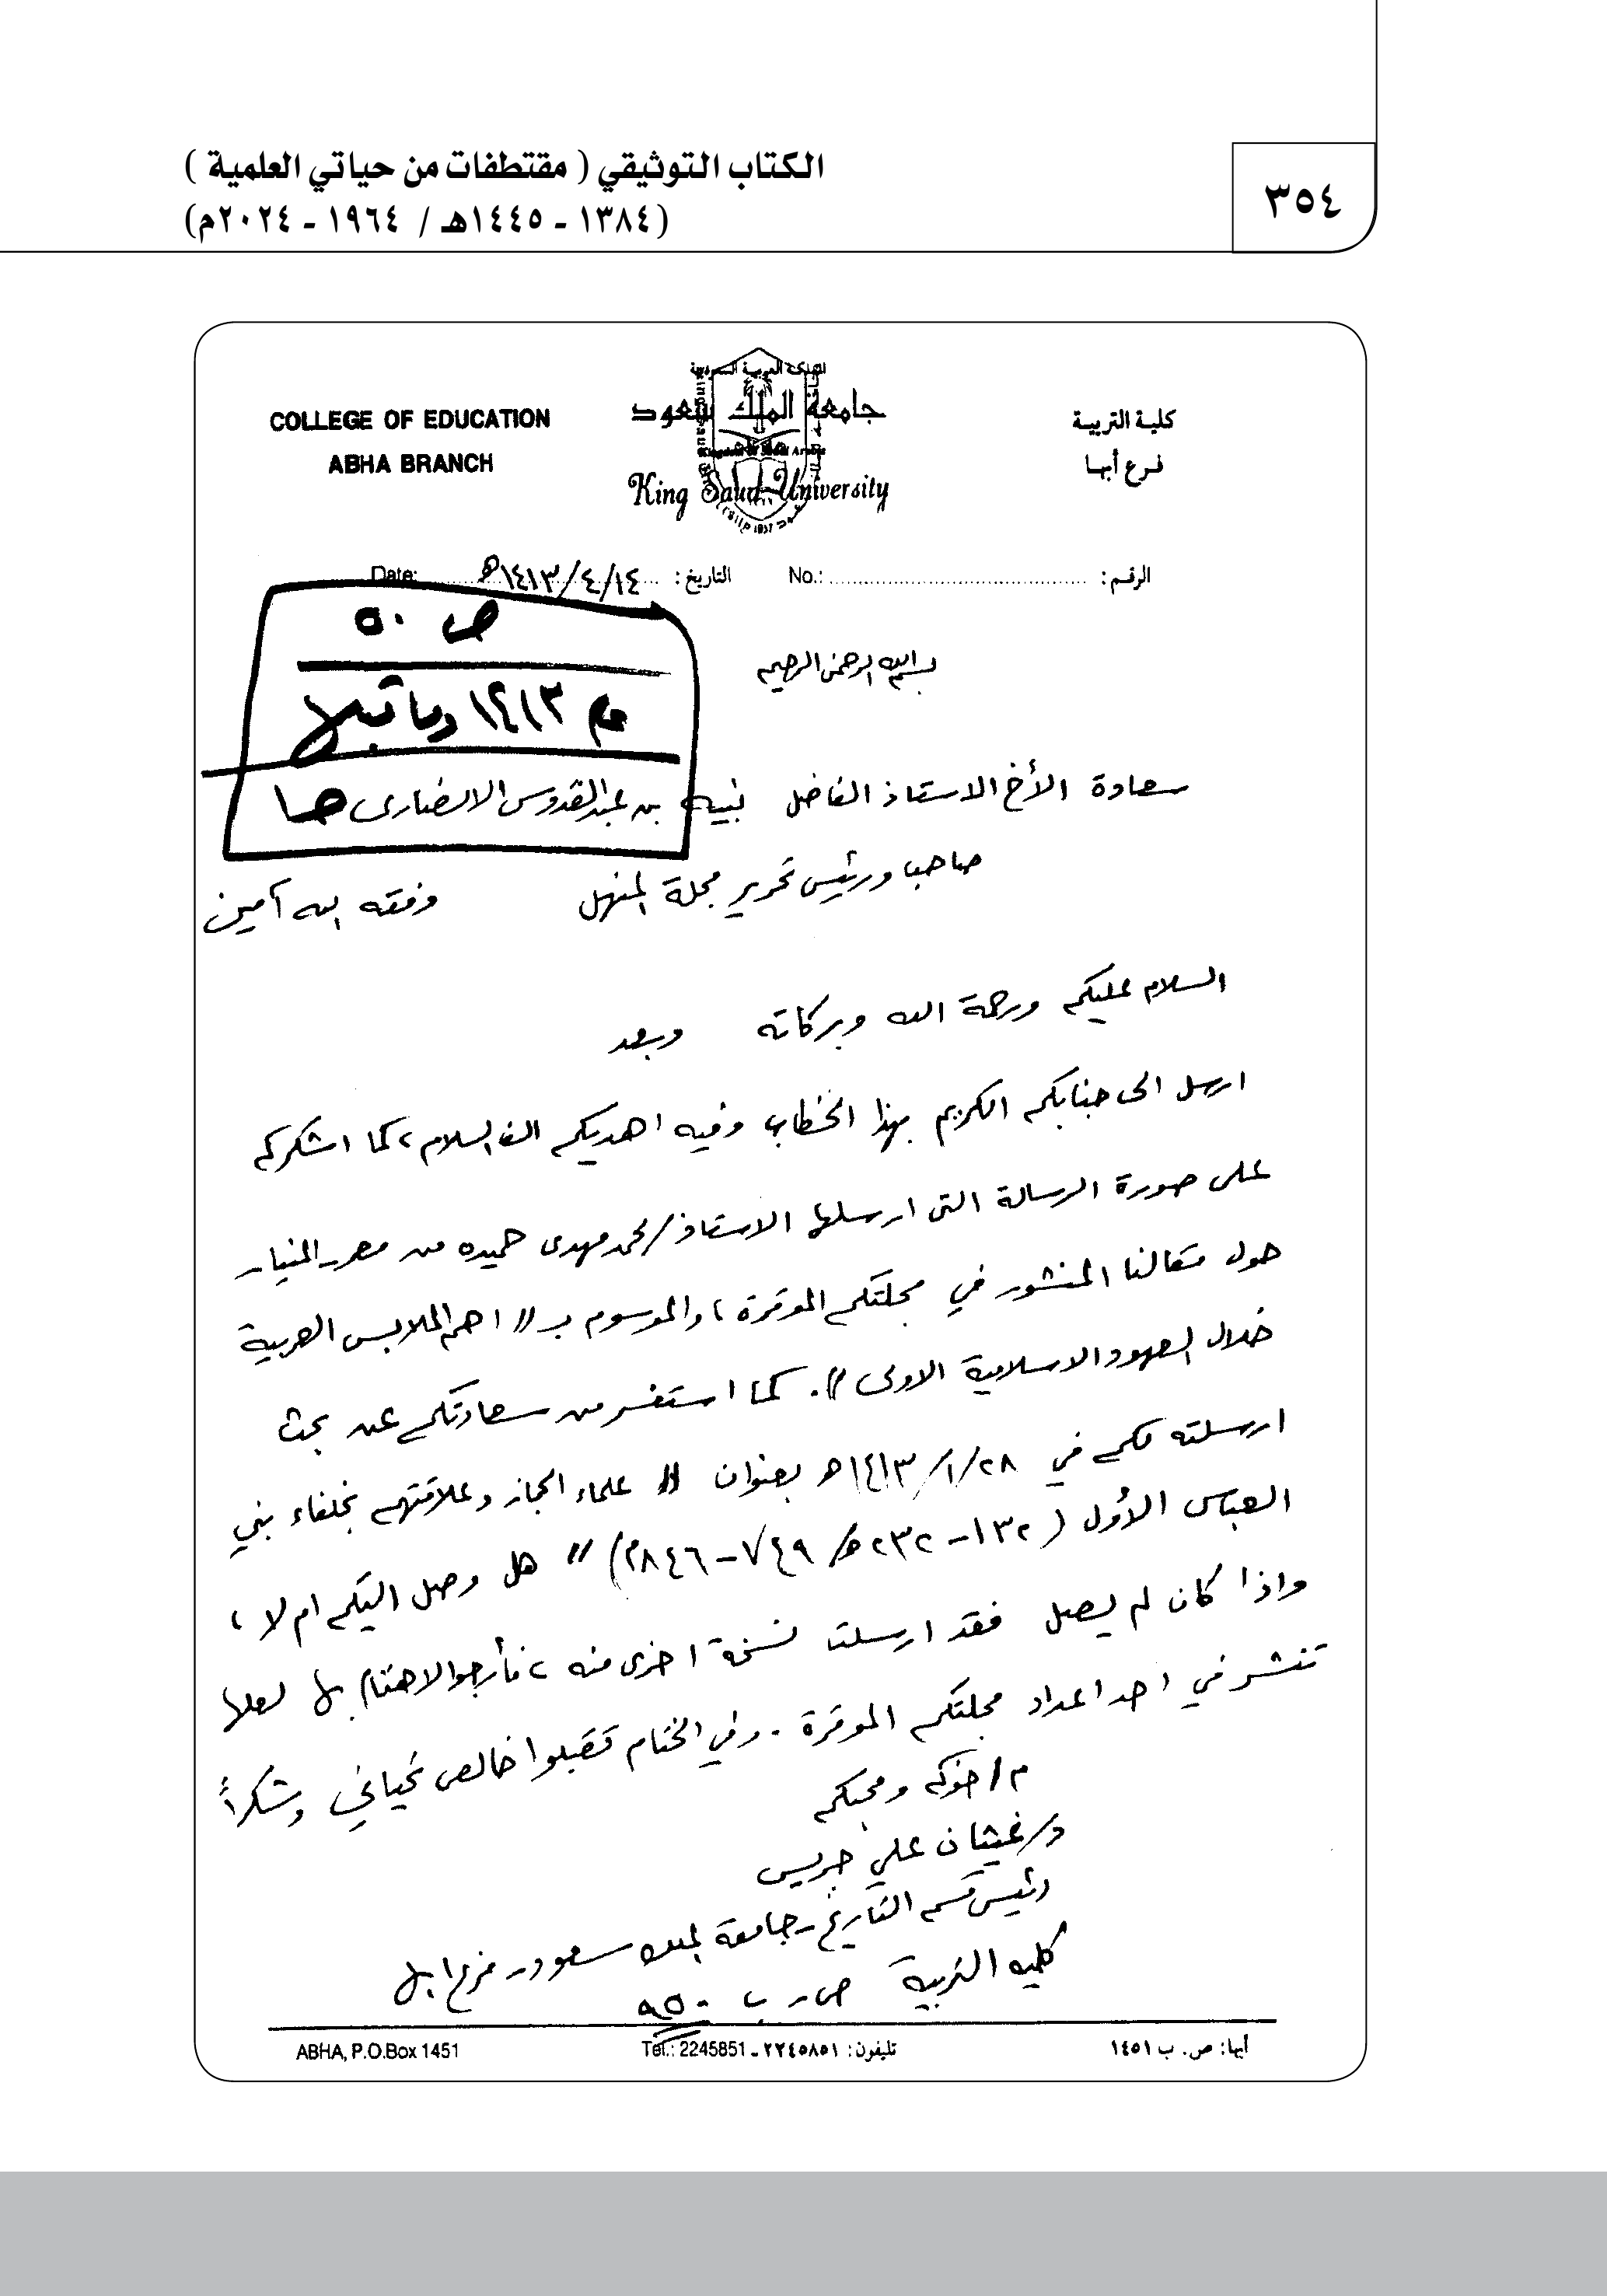 ٣٥٤
الكتاب التوثيقي ( مقتطفات من حياتي العلمية )
(١٣٨٤ - ١٤٤٥هـ / ١٩٦٤ - ٢٠٢٤م)
كلية التربية
فرع أبها
المملكة العربية السعودية
جامعة الملك سعود
Kingdom of Saudi Arabia
King Saud University
COLLEGE OF EDUCATION
ABHA BRANCH
الرقم : No.:
التاريخ : ١٤١٣/٤/١٤هـ Date:
ص ٥٠
عام ١٤١٣ وما قبلها
بسم الله الرحمن الرحيم
سعادة الأخ الاستاذ الفاضل نبيه بن عبدالقدوس الانصارى
صاحب ورئيس تحرير مجلة المنهل وفقه الله آمين
السلام عليكم ورحمة الله وبركاته وبعد
ارسل الى جنابكم الكريم بهذا الخطاب وفيه اهديكم الف السلام، كما اشكركم
على صورة الرسالة التى ارسلها الاستاذ/ محمد مهدى حميده من مصر-المنيا-
حول مقالنا المنشور في مجلتكم الموقرة، والموسوم بـ // اهم الملابس العربية
خلال العهود الاسلامية الاولى //. كما استفسر من سعادتكم عن بحث
ارسلته لكم في ١٤١٣/١/٢٨هـ بعنوان // علماء الحجاز وعلاقتهم بخلفاء بني
العباس الأول (١٣٢-٢٣٢هـ/ ٧٤٩-٨٤٦م) // هل وصل اليكم ام لا ،
واذا كان لم يصل فقد ارسلت نسخة اخرى منه ، فأرجوا الاهتمام بها لعلها
تنشر في احد اعداد مجلتكم الموقرة . وفي الختام تقبلوا خالص تحياتي وشكراً
م/ اخوكم ومحبكم
د/ غيثان علي جريس
رئيس قسم التاريخ - جامعة الملك سعود - فرع ابها
كليه التربية ص.ب ٩٥٠
أبها: ص. ب ١٤٥١
تليفون: ٢٢٤٥٨٥١ - Tel.: 2245851
ABHA, P.O.Box 1451